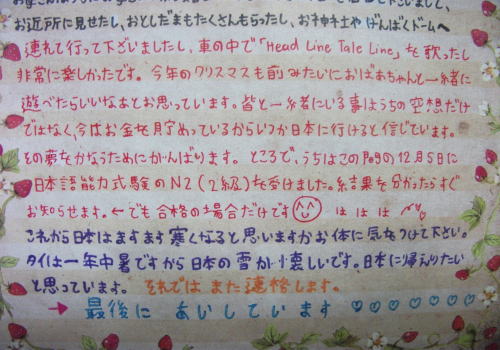 お近所に見せたし、おとしだまもたくさんもらったし、お神社やげんばくドームへ
連れて行って下ざいましたし、車の中で「Head Line Tale Line」を歌ったし
非常に楽しかったです。今年のクリスマスも前みたいにおばあちゃんと一緒に
遊べたらいいなあとお思っています。皆と一緒にいる事はうちの空想だけ
ではなく、今はお金を貯めっているからいつか日本に行けると信じています。
その夢をかなうためにがんばります。ところで、うちはこの間の12月5日に
日本語能力式験のN2(2級)を受けました。結果を分かったらすぐ
お知らせます。←でも合格の場合だけです ははは
これから日本はますます寒くなると思いますからお体に気をつけて下ざい。
タイは一年中暑ですから日本の雪が懐しいです。日本に帰えりたい
と思っています。それではまた連絡します。
→ 最後に あいしています ♡♡♡♡♡♡♡